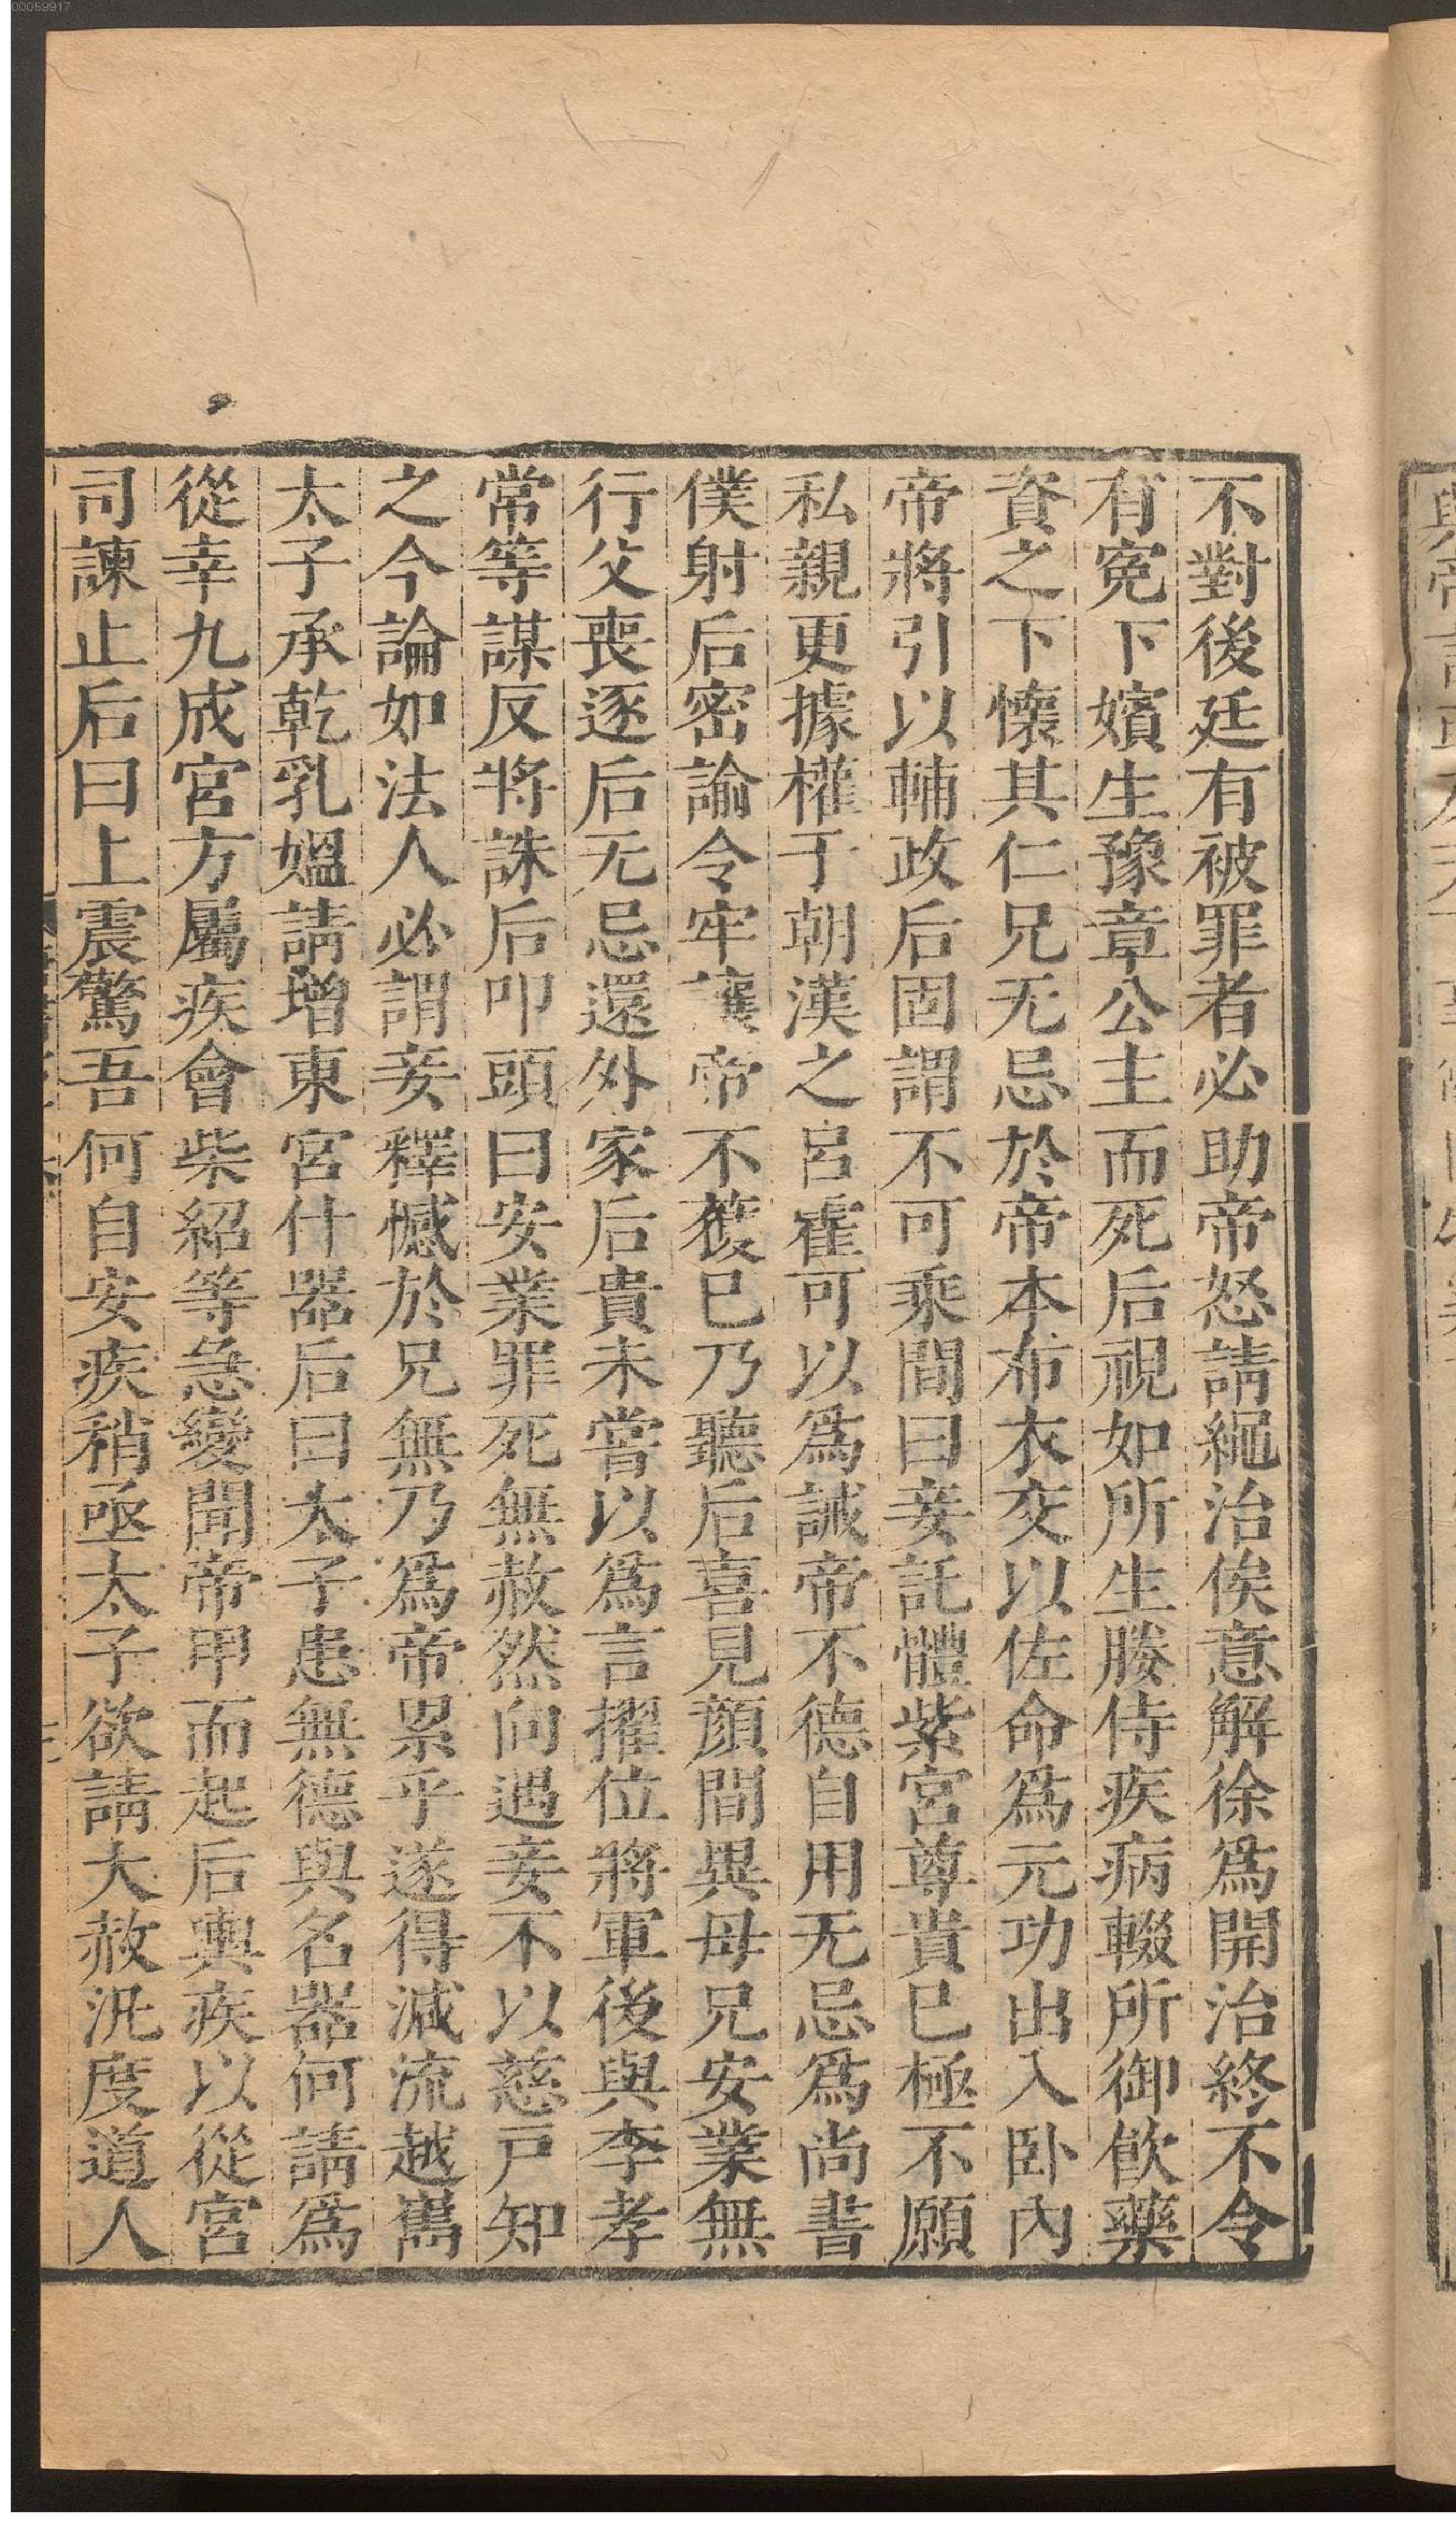 00059917
不對後廷有被罪者必助帝怒請繩治俟意解徐爲開治終不令
有冤下嬪生豫章公主而死后視如所生媵侍疾病輟所御飲藥
資之下懷其仁兄无忌於帝本布衣交以佐命爲元功出入卧內
帝將引以輔政后固謂不可乘間曰妾託體紫宮尊貴已極不願
私親更據權于朝漢之呂霍可以爲誡帝不德自用无忌爲尚書
僕射后密諭令牢讓帝不獲已乃聽后喜見顏間異母兄安業無
行父喪逐后无忌還外家后貴未嘗以爲言擢位將軍後與李孝
常等謀反將誅后叩頭曰安業罪死無赦然向遇妾不以慈戸知
之今論如法人必謂妾釋憾於兄無乃爲帝累乎遂得減流越嶲
太子承乾乳媼請增東宮什器后曰太子患無德與名器何請爲
從幸九成宮方屬疾會柴紹等急變聞帝甲而起后輿疾以從宮
司諫止后曰上震驚吾何自安疾稍亟太子欲請大赦汎度道人